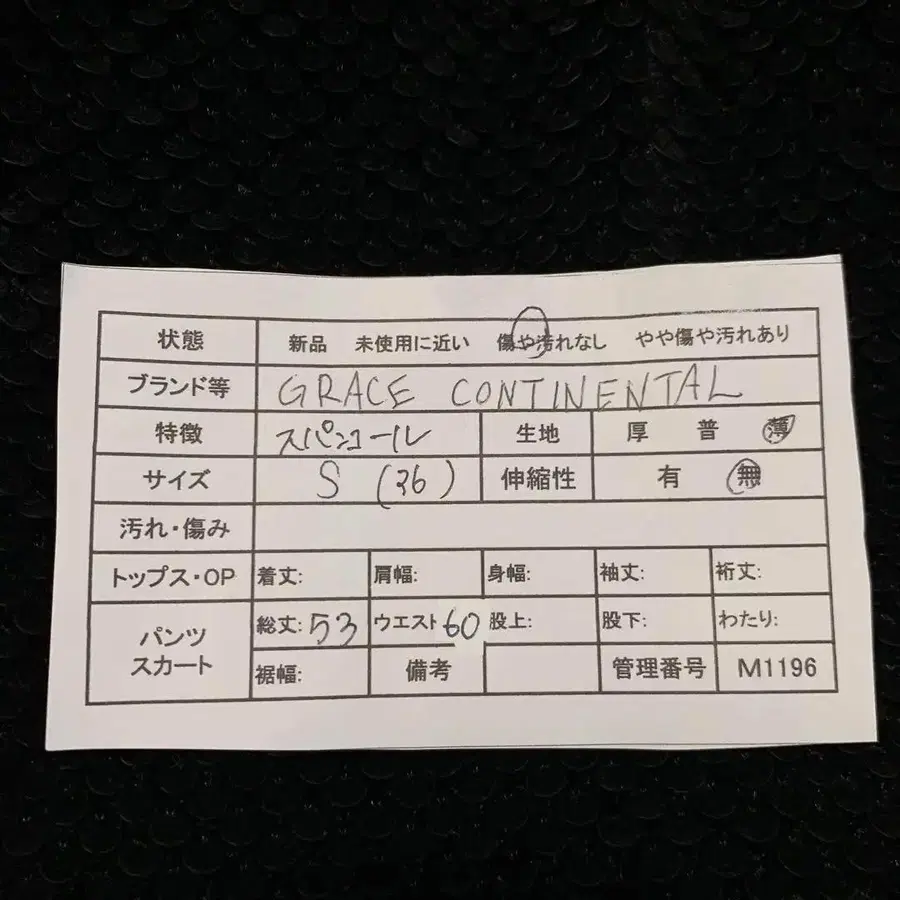 状態 新品 未使用に近い 傷や汚れなし やや傷や汚れあり
ブランド等 GRACE CONTINENTAL
特徴 スパンコール 生地 厚 普 薄
サイズ S (36) 伸縮性 有 無
汚れ・傷み
トップス・OP 着丈: 肩幅: 身幅: 袖丈: 裄丈:
パンツ スカート 総丈: 53 ウエスト 60 股上: 股下: わたり:
裾幅: 備考 管理番号 M1196